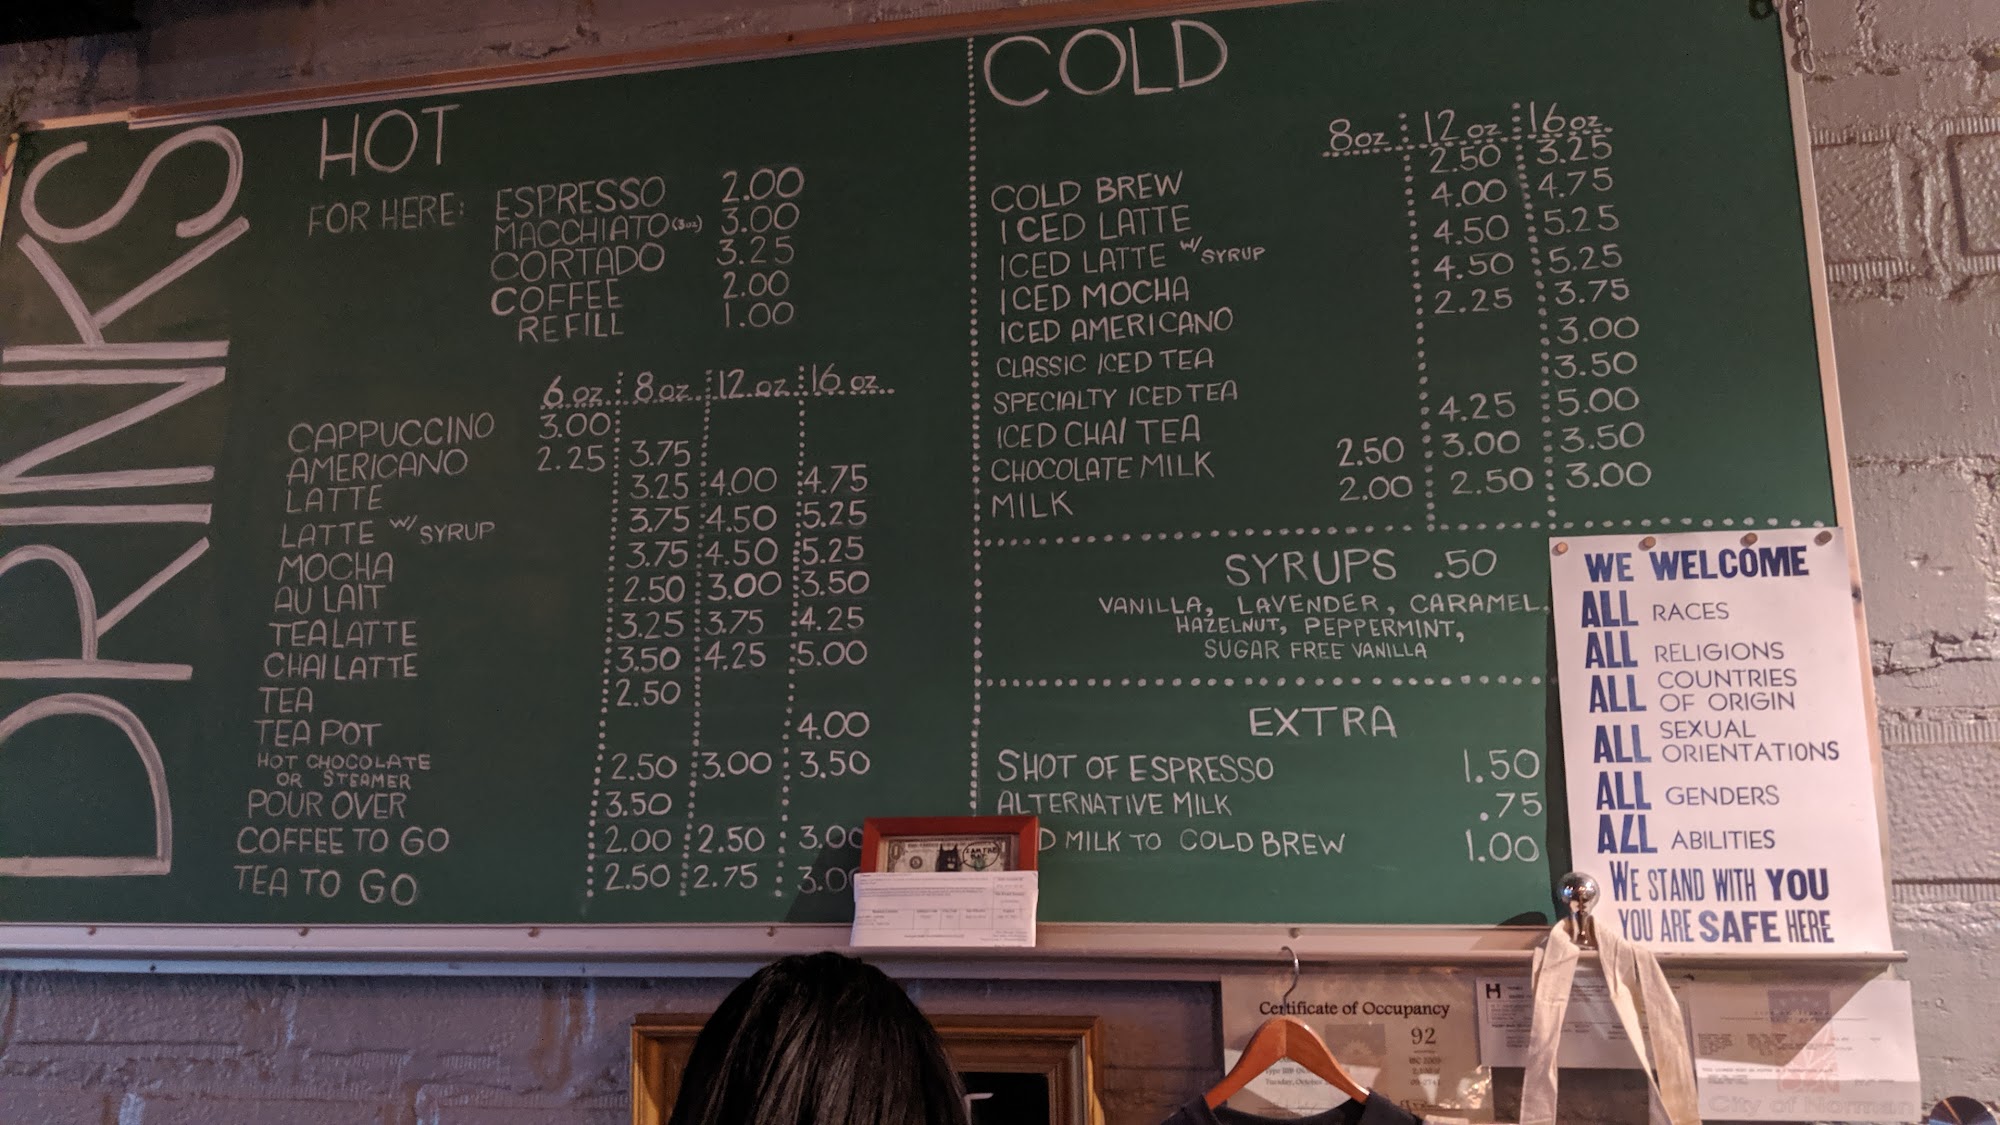 DRINKS
HOT
FOR HERE: ESPRESSO 2.00
MACCHIATO (3oz) 3.00
CORTADO 3.25
COFFEE 2.00
REFILL 1.00
6 oz 8 oz 12 oz 16 oz
CAPPUCCINO 3.00
AMERICANO 2.25 3.75
LATTE 3.25 4.00 4.75
LATTE W/ SYRUP 3.75 4.50 5.25
MOCHA 3.75 4.50 5.25
AU LAIT 2.50 3.00 3.50
TEA LATTE 3.25 3.75 4.25
CHAI LATTE 3.50 4.25 5.00
TEA 2.50
TEA POT 4.00
HOT CHOCOLATE
OR STEAMER 2.50 3.00 3.50
POUR OVER 3.50
COFFEE TO GO 2.00 2.50 3.00
TEA TO GO 2.50 2.75 3.00
COLD
8oz 12 oz 16 oz
COLD BREW 2.50 3.25
ICED LATTE 4.00 4.75
ICED LATTE W/ SYRUP 4.50 5.25
ICED MOCHA 4.50 5.25
ICED AMERICANO 2.25 3.75
CLASSIC ICED TEA 3.00
SPECIALTY ICED TEA 3.50
ICED CHAI TEA 4.25 5.00
CHOCOLATE MILK 2.50 3.00 3.50
MILK 2.00 2.50 3.00
SYRUPS .50
VANILLA, LAVENDER, CARAMEL,
HAZELNUT, PEPPERMINT,
SUGAR FREE VANILLA
EXTRA
SHOT OF ESPRESSO 1.50
ALTERNATIVE MILK .75
D MILK TO COLD BREW 1.00
WE WELCOME
ALL RACES
ALL RELIGIONS
ALL COUNTRIES
OF ORIGIN
ALL SEXUAL
ORIENTATIONS
ALL GENDERS
ALL ABILITIES
WE STAND WITH YOU
YOU ARE SAFE HERE
Certificate of Occupancy
92
Tuesday, October
H
City of Norman